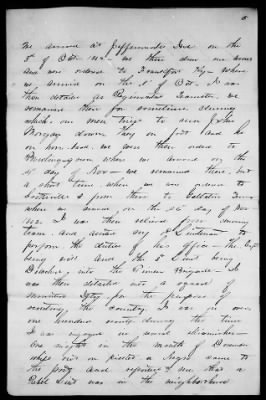 5
We arrived at Jeffersonville Ind on the
5th of Oct 1862 - we there drew our arms
and were ordered to Frankfort Ky. where
we arrived on the of Oct. I was
then detailed as Regimental Teamster we
remained there for sometime during
which our men tried to run John
Morgan down, they on foot and he
on horseback. we were then ordered to
Bowlinggreen where we arrived on the
day of Nov - we remained there but
a short time, when we were ordered to
Scottsville & from there to Gallatin Tenn
where we arrived on the 26th day of Nov
1862. I was then relieved from driving
team. and acting as Lieutenant to
perform the duties of his office - the Capt
being sick and the Lieut being
detached, into the Pioneer Brigade - I
was then detailed with a squad of
mounted Infty for the purpose of
scouting the country. I was in over
one hundred scouts during the time
I was engaged in several skirmishes -
One night in the month of December
whilst out on picket a Negro came to
the post and reported to me that a
Rebel Lieut was in the neighborhood